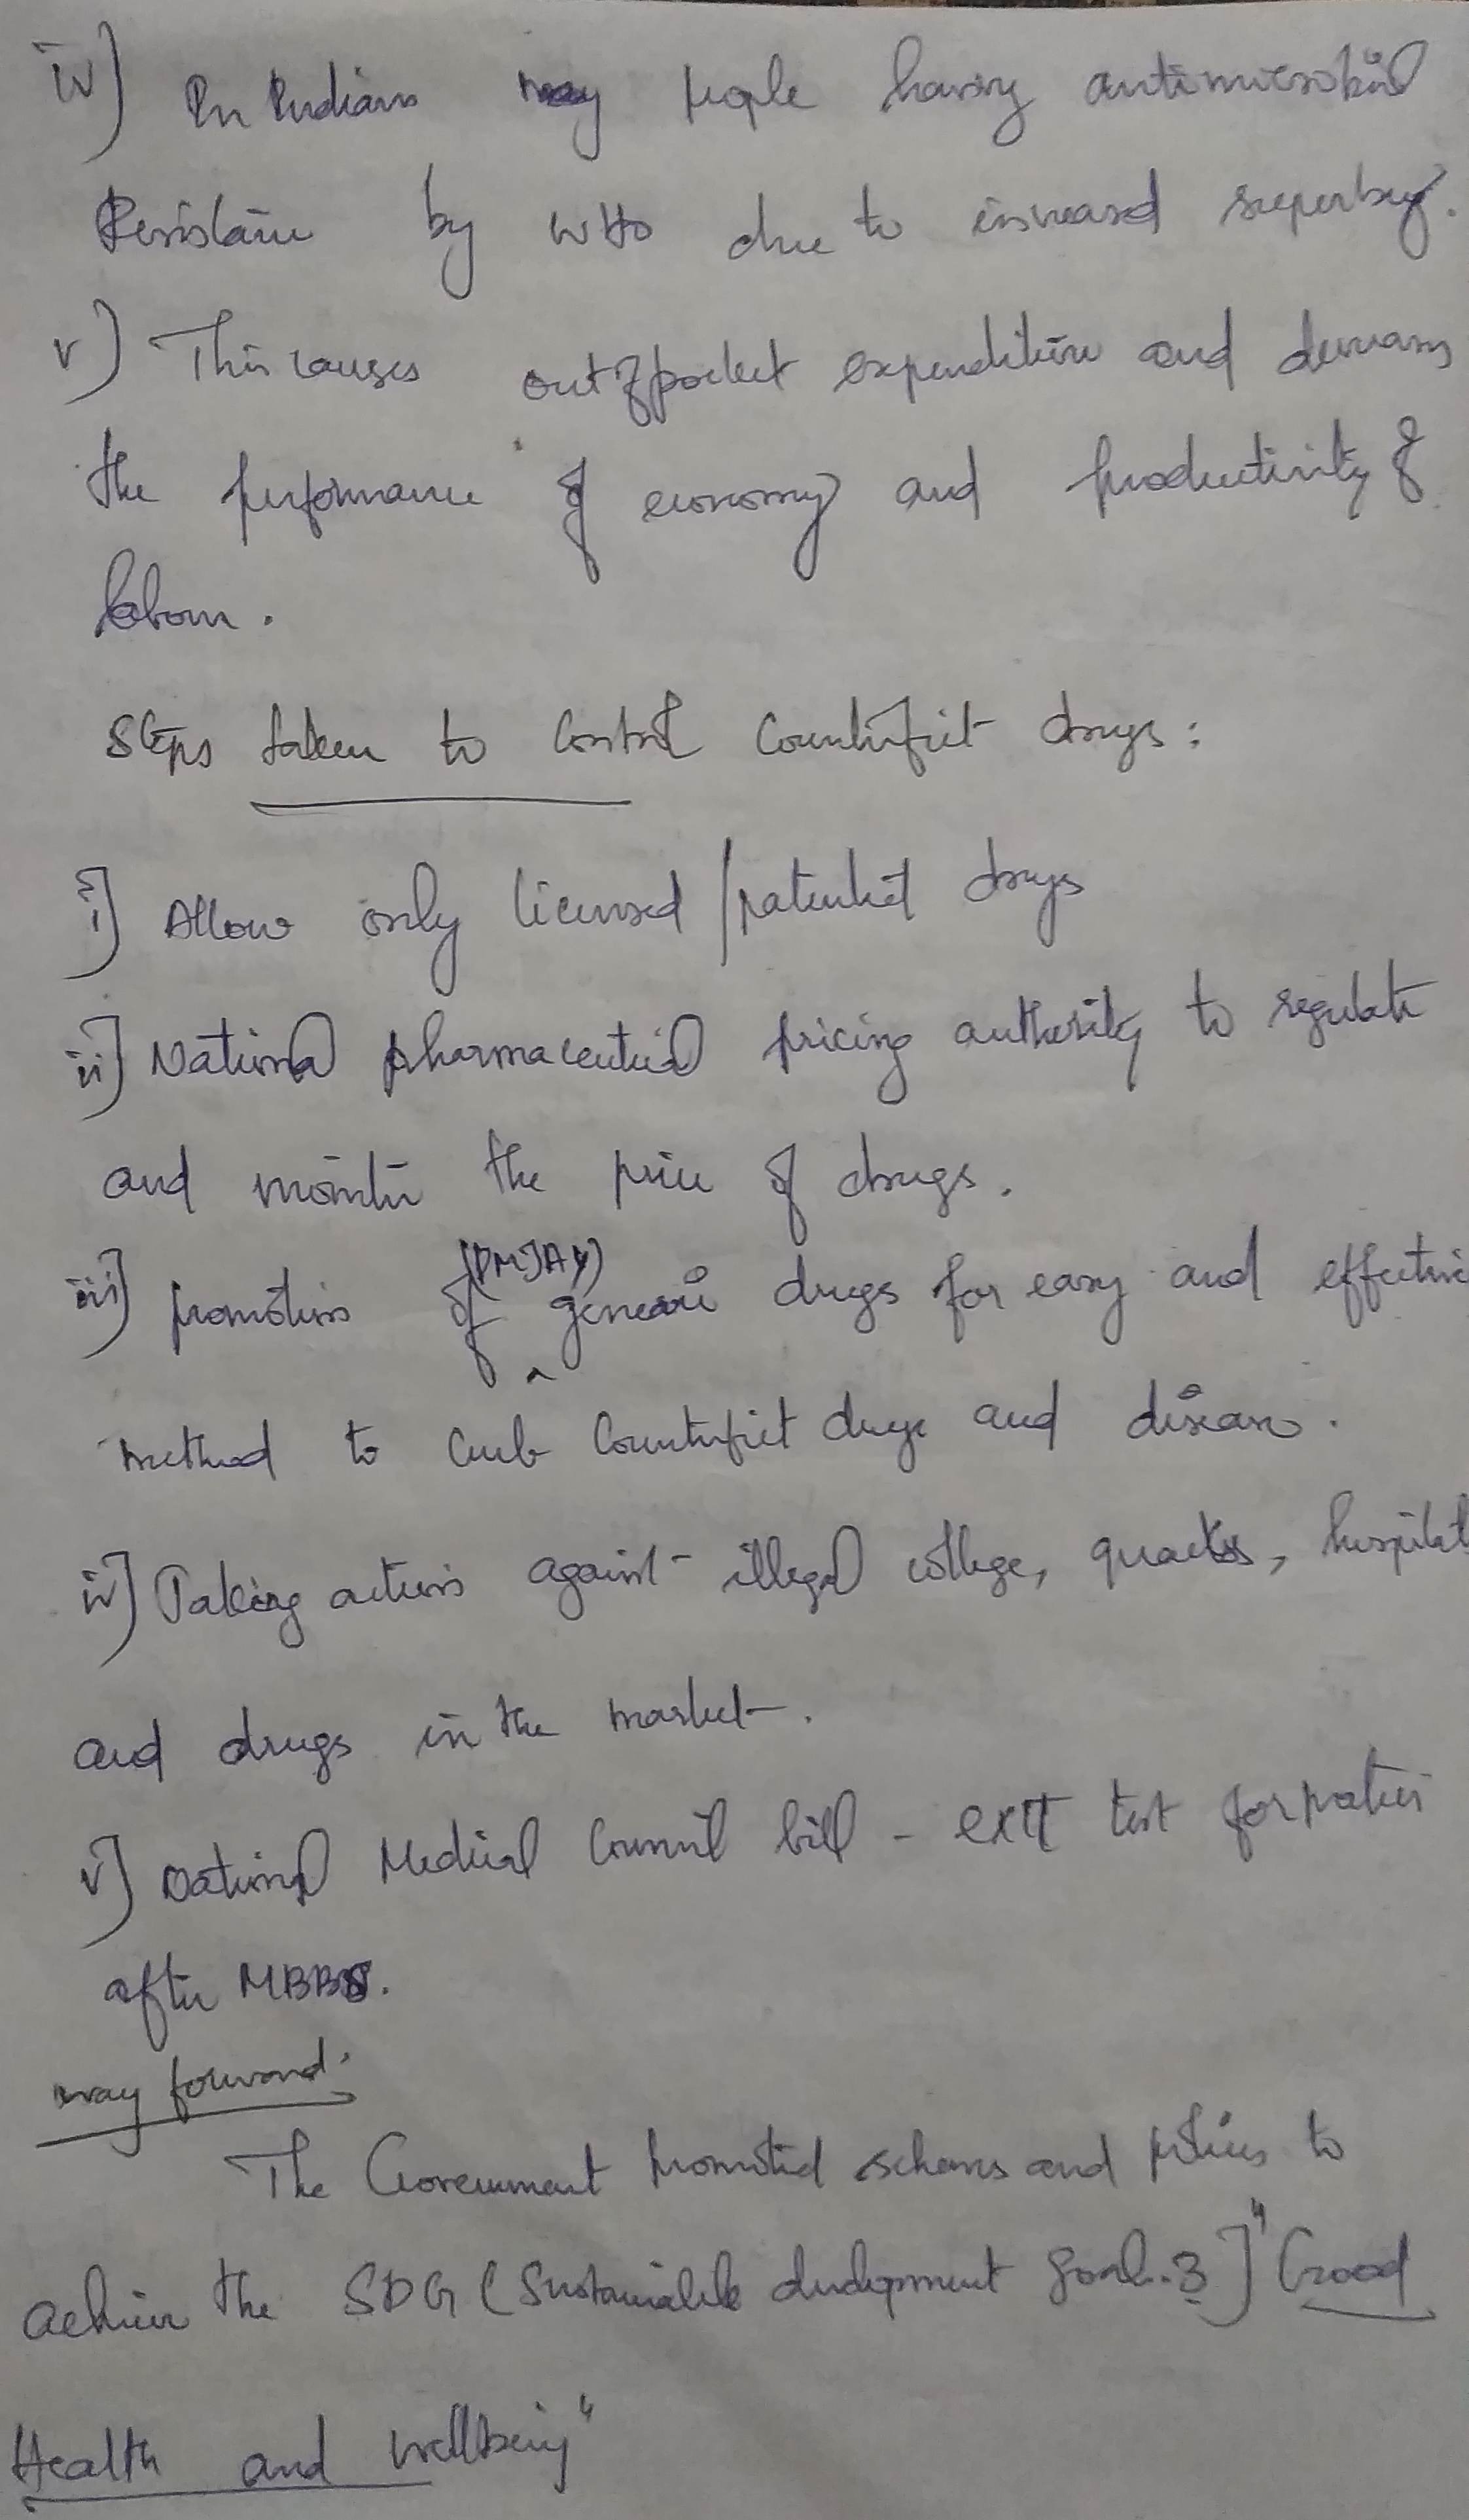 iv) In Indians many people having antimicrobial
Resistance by WHO due to increased superbug.
v) This causes out of pocket expenditure and
the performance of economy and productivity of
labour.
Steps taken to control Counterfeit drugs:
i] Allow only licensed/patented drugs
ii] National pharmaceutical pricing authority to regulate
and monitor the price of drugs.
(PMJAY)
iii] promotion of generic drugs for easy and effective
method to curb Counterfeit drugs and disease.
iv] Taking actions against illegal college, quacks, hospital
and drugs in the market.
v] National Medical Council bill - exit test for
after MBBS.
way forward:
The Government promoted schemes and policies to
achieve the SDG (Sustainable development goal.3] "Good
Health and Wellbeing"